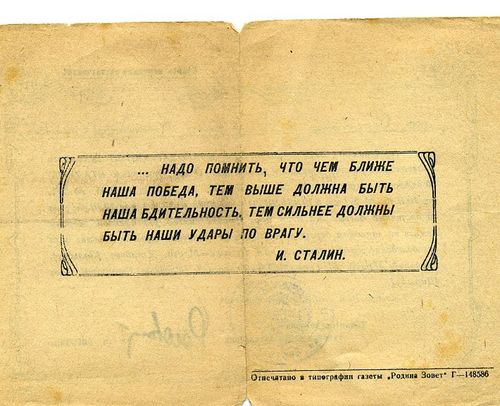 ... НАДО ПОМНИТЬ, ЧТО ЧЕМ БЛИЖЕ
НАША ПОБЕДА, ТЕМ ВЫШЕ ДОЛЖНА БЫТЬ
НАША БДИТЕЛЬНОСТЬ, ТЕМ СИЛЬНЕЕ ДОЛЖНЫ
БЫТЬ НАШИ УДАРЫ ПО ВРАГУ.
И. СТАЛИН.
Отпечатано в типографии газеты „Родина Зовет" Г—148586